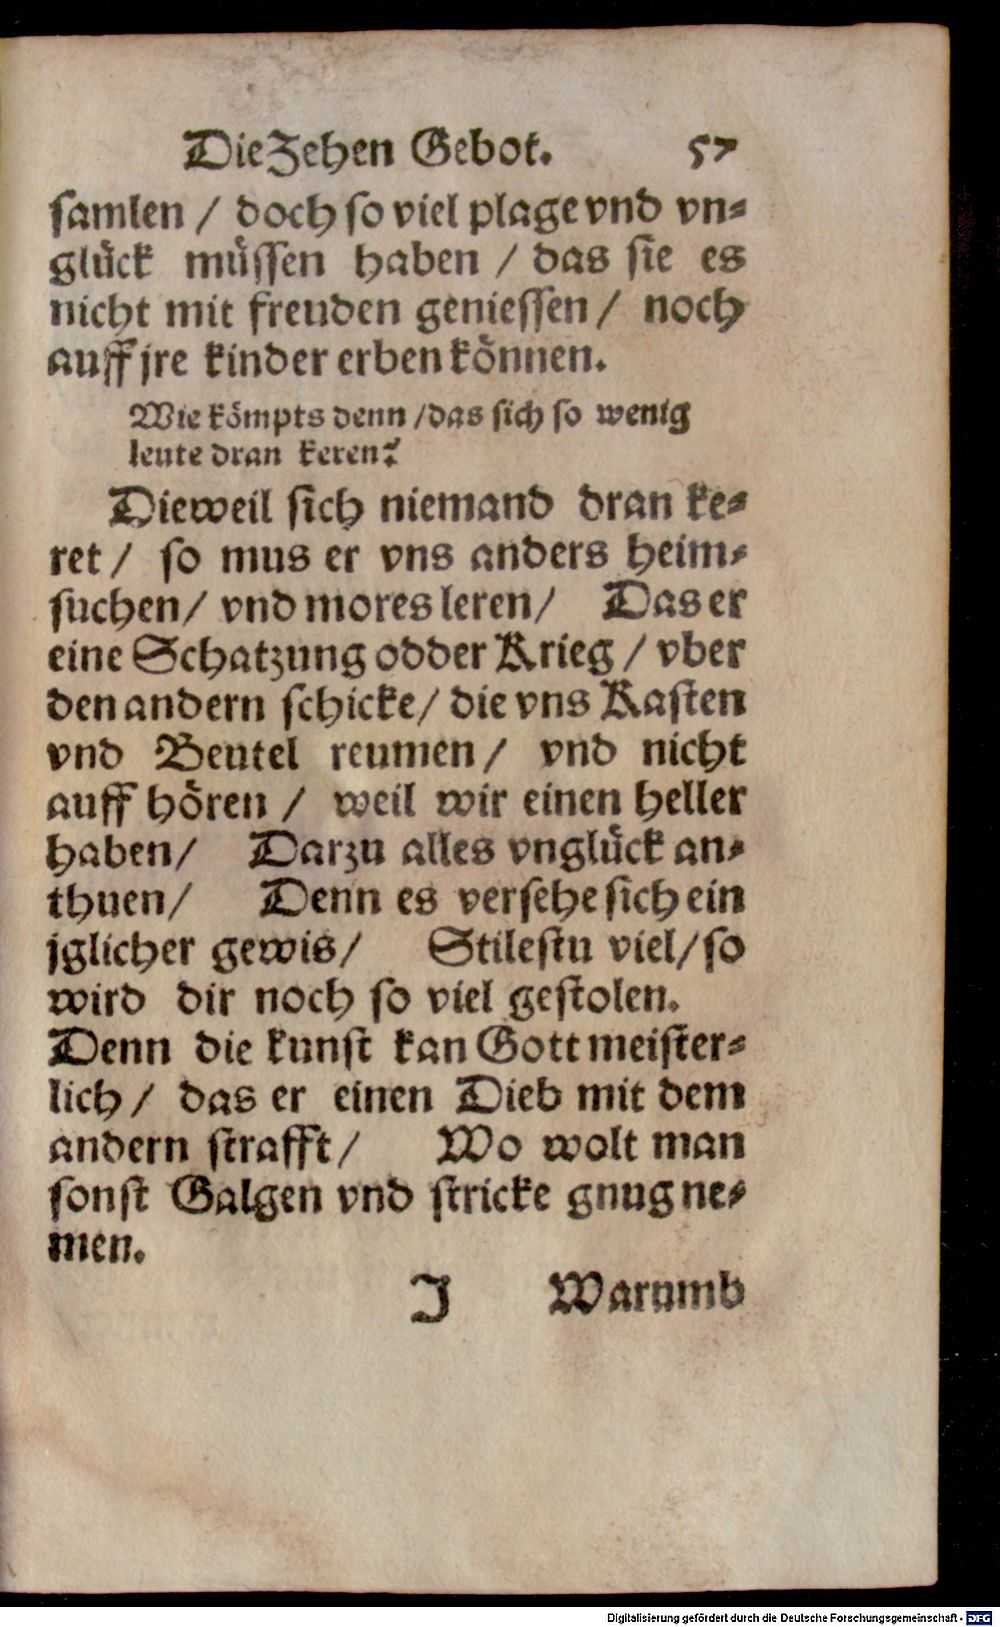 Die Zehen Gebot. 57
samlen / doch so viel plage vnd vn⸗
glück müssen haben / das sie es
nicht mit freuden geniessen / noch
auff jre kinder erben können.
Wie kömpts denn / das sich so wenig
leute dran keren?
Dieweil sich niemand dran ke⸗
ret / so mus er vns anders heim⸗
suchen / vnd mores leren / Das er
eine Schatzung odder Krieg / vber
den andern schicke / die vns Kasten
vnd Beutel reumen / vnd nicht
auff hören / weil wir einen heller
haben / Darzu alles vnglück an⸗
thuen / Denn es versehe sich ein
jglicher gewis / Stilestu viel / so
wird dir noch so viel gestolen.
Denn die kunst kan Gott meister⸗
lich / das er einen Dieb mit dem
andern strafft / Wo wolt man
sonst Galgen vnd stricke gnug ne⸗
men.
J Warumb
Digitalisierung gefördert durch die Deutsche Forschungsgemeinschaft - DFG